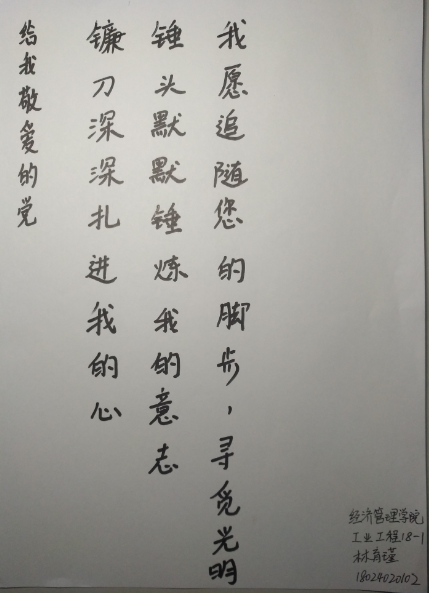 给我敬爱的党
镰刀深深扎进我的心
锤头默默锤炼我的意志
我愿追随您的脚步，寻觅光明
经济管理学院
工业工程18-1
林育瑾
18024020102